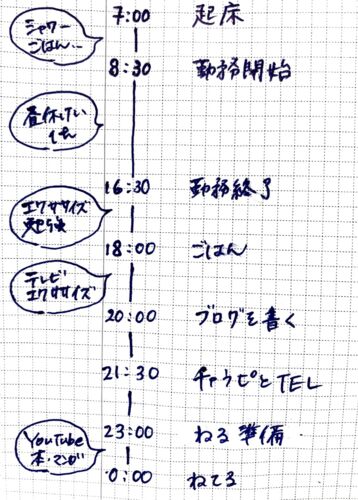 シャワー
ごはん..
7:00 起床
8:30 勤務開始
昼休けい
16:30 勤務終了
エクササイズ
勉強
18:00 ごはん
テレビ
エクササイズ
20:00 ブログを書く
21:30 チャうピとTEL
23:00 ねる準備
YouTube
本・マンガ
0:00 ねてる